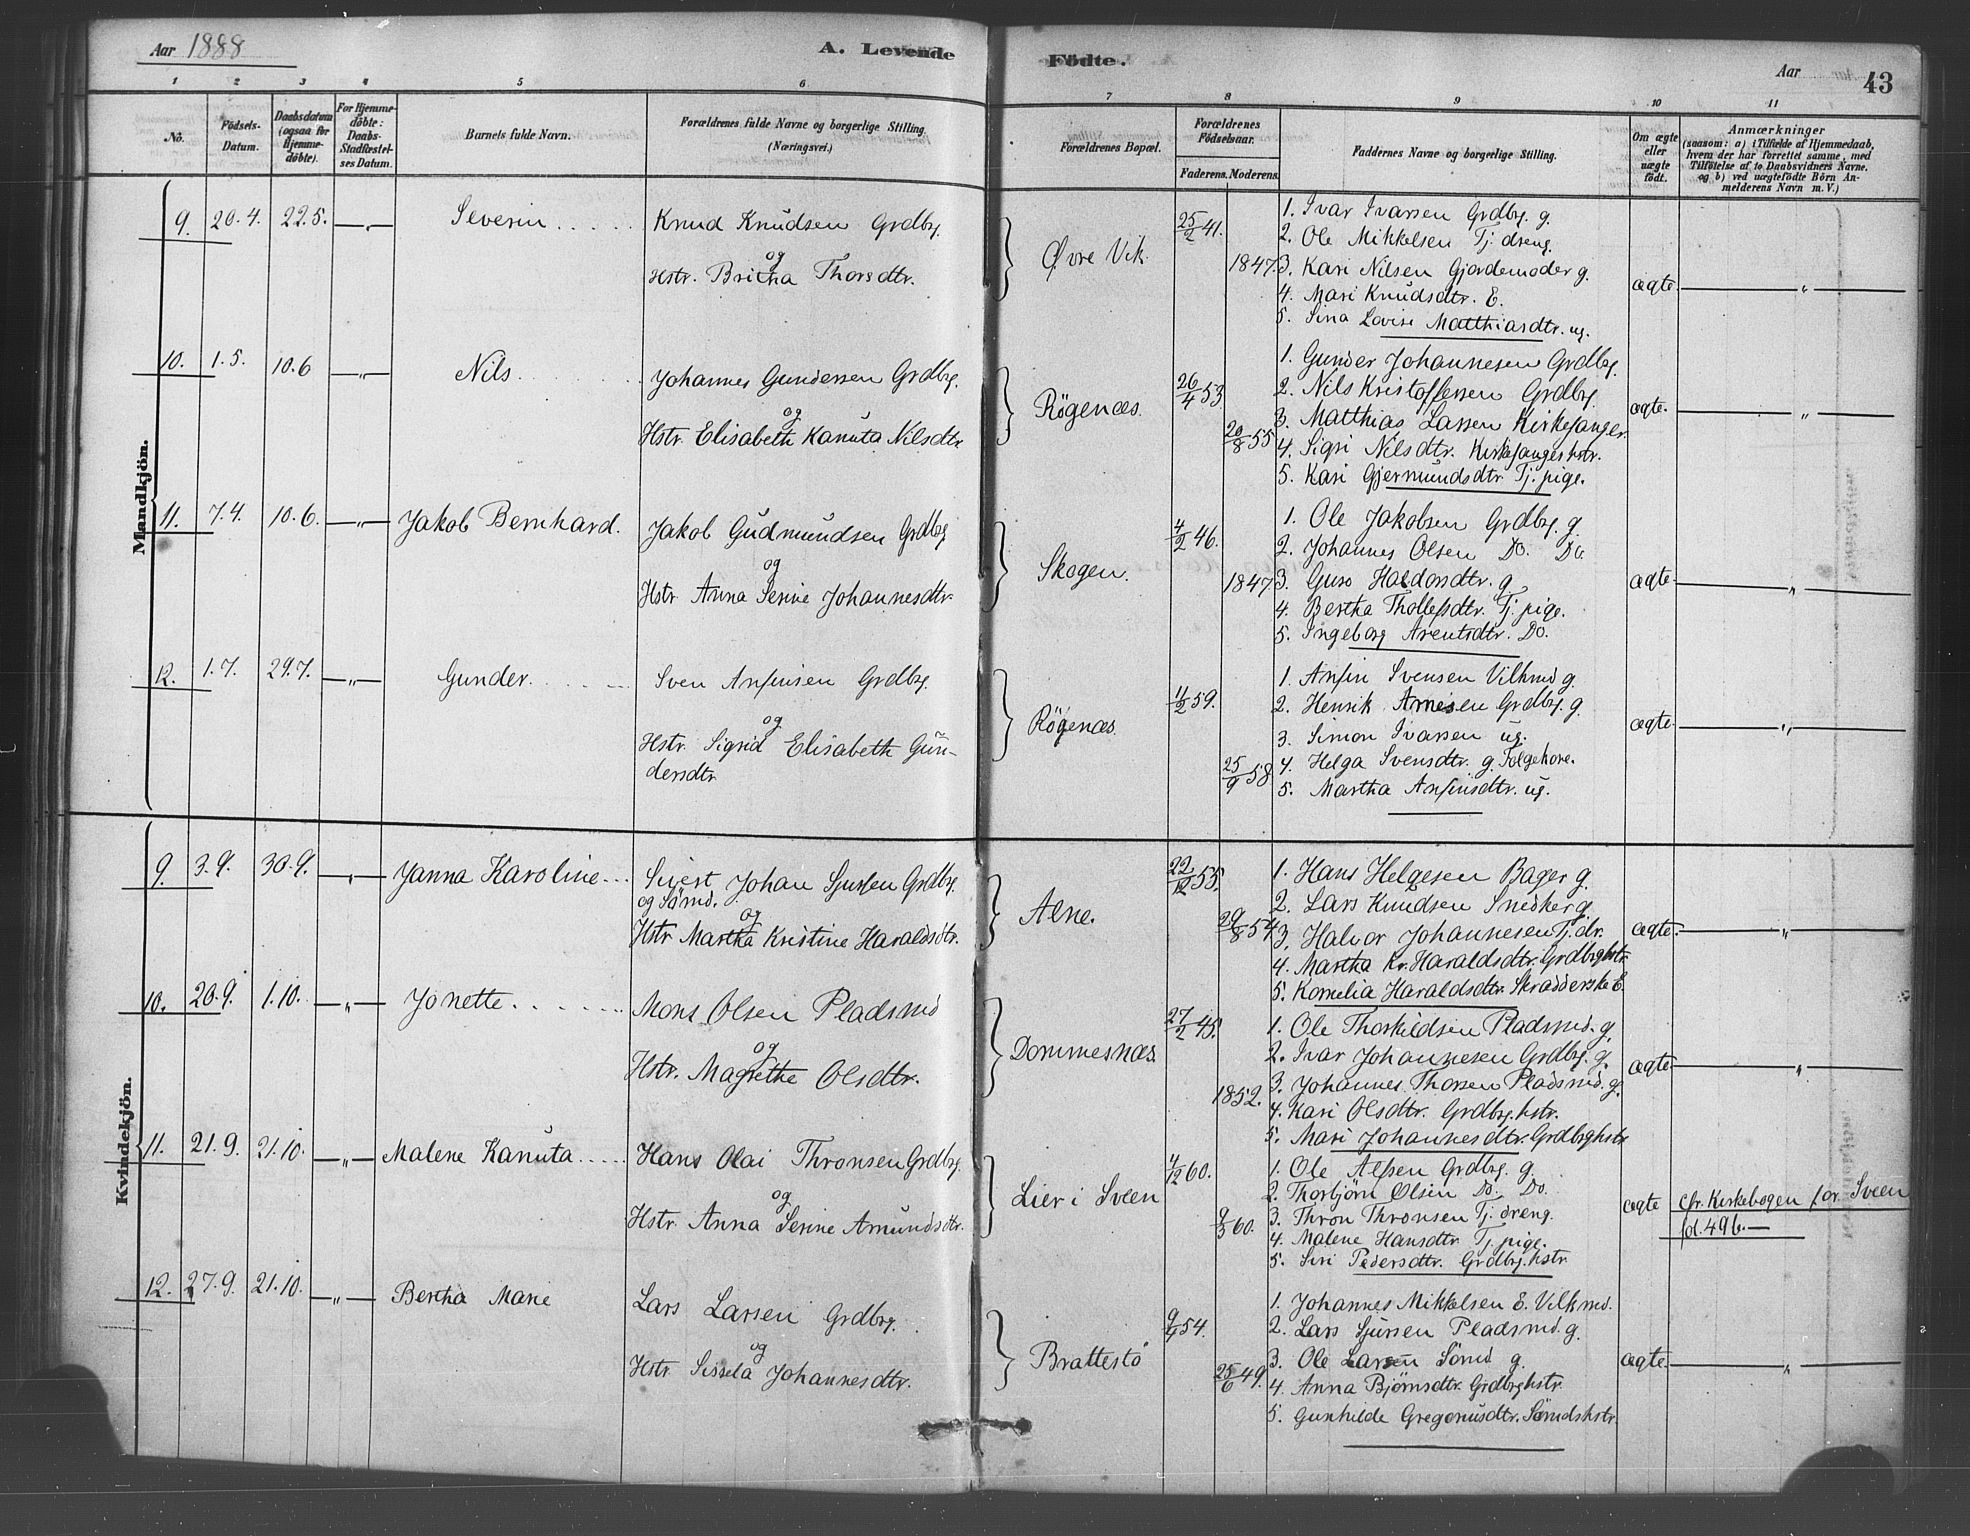 Aar 1888
A. Levende
Födte.
Aar
43
1 2 3 4 5 6 7 8 9 10 11
No.
Födsels-
Datum.
Daabsdatum
(ogsaa for
Hjemme-
döbte).
For Hjemme-
döbte:
Daabs-
Stadfæstel-
ses Datum.
Barnets fulde Navn.
Forældrenes fulde Navne og borgerlige Stilling.
(Næringsvei.)
Forældrenes Bopæl.
Forældrenes
Födselsaar.
Faderens. Moderens.
Faddernes Navne og borgerlige Stilling.
Om ægte
eller
uægte
født.
Anmærkninger
(saasom: a) i Tilfælde af Hjemmedaab,
hvem der har forrettet samme, med
Tilföielse af to Daabsvidners Navne.
og b) ved uægtefödte Börn An-
melderens Navn m.V.)
Mandkjön.
9. 20.4. 22.5. —„— Severin
Knud Knudsen Grdbrg.
og
Hstr. Britha Thorsdtr.
Øvre Vik
25/2 41.
1847.
1. Ivar Ivarsen Grdbrg. g.
2. Ole Mikkelsen Tj. dreng.
3. Kari Nilsen Gjordemoder g.
4. Mari Knudsdtr. E.
5. Sina Lovise Matthiasdtr. ug.
ægte. —„—
10. 1.5. 10.6 —„— Nils
Johannes Gundersen Grdbrg.
og
Hstr. Elisabeth Kanuta Nilsdtr
Røgenæs.
26/4 53.
20/8 55
1. Gunder Johannesen Grdbrg.
2. Nils Kristoffersen Grdbrg.
3. Matthias Larsen Kirkesanger.
4. Sigri Nilsdtr. Kirkesangershstr.
5. Kari Gjermundsdtr Tj. pige.
ægte. —„—
11. 7.4. 10.6. —„— Jakob Bernhard.
Jakob Gudmundsen Grdbrg
og
Hstr Anna Serine Johannesdtr.
Skogen.
4/2 46.
1847
1. Ole Jakobsen Grdbrg. g.
2. Johannes Olsen Do. Do.
3. Guro Haldorsdtr. g
4. Bertha Thollefsdtr. Tj. pige.
5. Ingeborg Arentsdtr. Do.
ægte. —„—
12. 1.7. 29.7. —„— Gunder.
Sven Anfinsen Grdbrg.
og
Hstr. Sigrid Elisabeth Gun-
dersdtr.
Røgenæs.
11/2 59.
25/9 58
1. Anfin Svensen Vilkmd g.
2. Henrik Arnesen Grdbrg. g.
3. Simon Ivarsen ug.
4. Helga Svensdtr. g. Følgekone.
5. Martha Anfinsdtr. ug.
ægte. —„—
Kvindekjön.
9. 3.9. 30.9. —„— Janna Karoline
Sivert Johan Sjursen Grdbrg.
og Sömd.
og
Hstr Martha Kristine Haraldsdtr.
Alne.
22/12 55.
29/8 54
1. Hans Helgesen Bager g.
2. Lars Knudsen Snedker g.
3. Halvor Johannesen Tj. dr.
4. Martha Kr. Haraldsdtr. Grdbrghstr
5. Kornelia Haraldsdtr. Skrædderske E.
ægte. —„—
10. 20.9. 1.10. —„— Jonette.
Mons Olsen Pladsmd
og
Hstr. Magrethe Olsdtr.
Dommesnæs
27/2 45.
1852.
1. Ole Thorkildsen Pladsmd. g.
2. Ivar Johannesen Grdbrg. g.
3. Johannes Thorsen Pladsmd. g.
4. Kari Olsdtr. Grdbrg.hstr.
5. Mari Johannesdtr. Grdbrghstr
ægte. —„—
11. 21.9. 21.10. —„— Malene Kanuta
Hans Olai Thronsen Grdbrg.
og
Hstr Anna Serine Amundsdtr.
Lier i Sveen
4/12 60.
9/3 60.
1. Ole Alfsen Grdbrg. g.
2. Thorbjörn Olsen Do. Do.
3. Thron Thronsen Tj. dreng.
4. Malene Hansdtr Tj. pige.
5. Siri Pedersdtr. Grdbrg.hstr
ægte cfr. Kirkebogen for Sveen
fol. 49 b.—
12. 27.9. 21.10. —„— Bertha Marie
Lars Larsen Grdbrg.
og
Hstr Sissela Johannesdtr.
Brattestö
9/4 54.
25/6 49.
1. Johannes Mikkelsen E. Vilkmd.
2. Lars Sjursen Pladsmd. g.
3. Ole Larsen Sömd g.
4. Anna Bjørnsdtr. Grdbrghstr.
5. Gunhilde Gregoriusdtr. Sömdshstr.
ægte. —„—